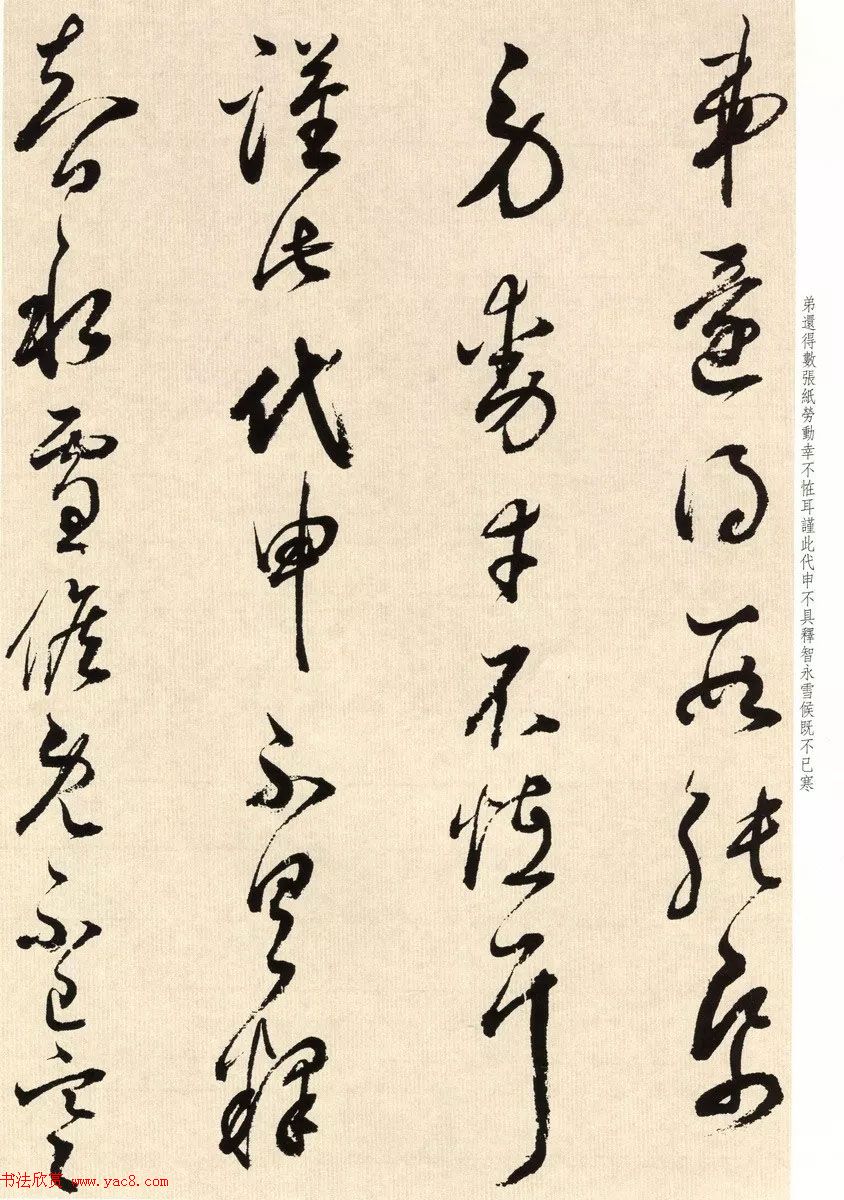 弟還得數張紙
勞動幸不恠耳
謹此代申不具釋
智永雪候既不已寒
弟還得數張紙勞動幸不恠耳謹此代申不具釋智永雪候既不已寒
书法欣赏 www.yac8.com